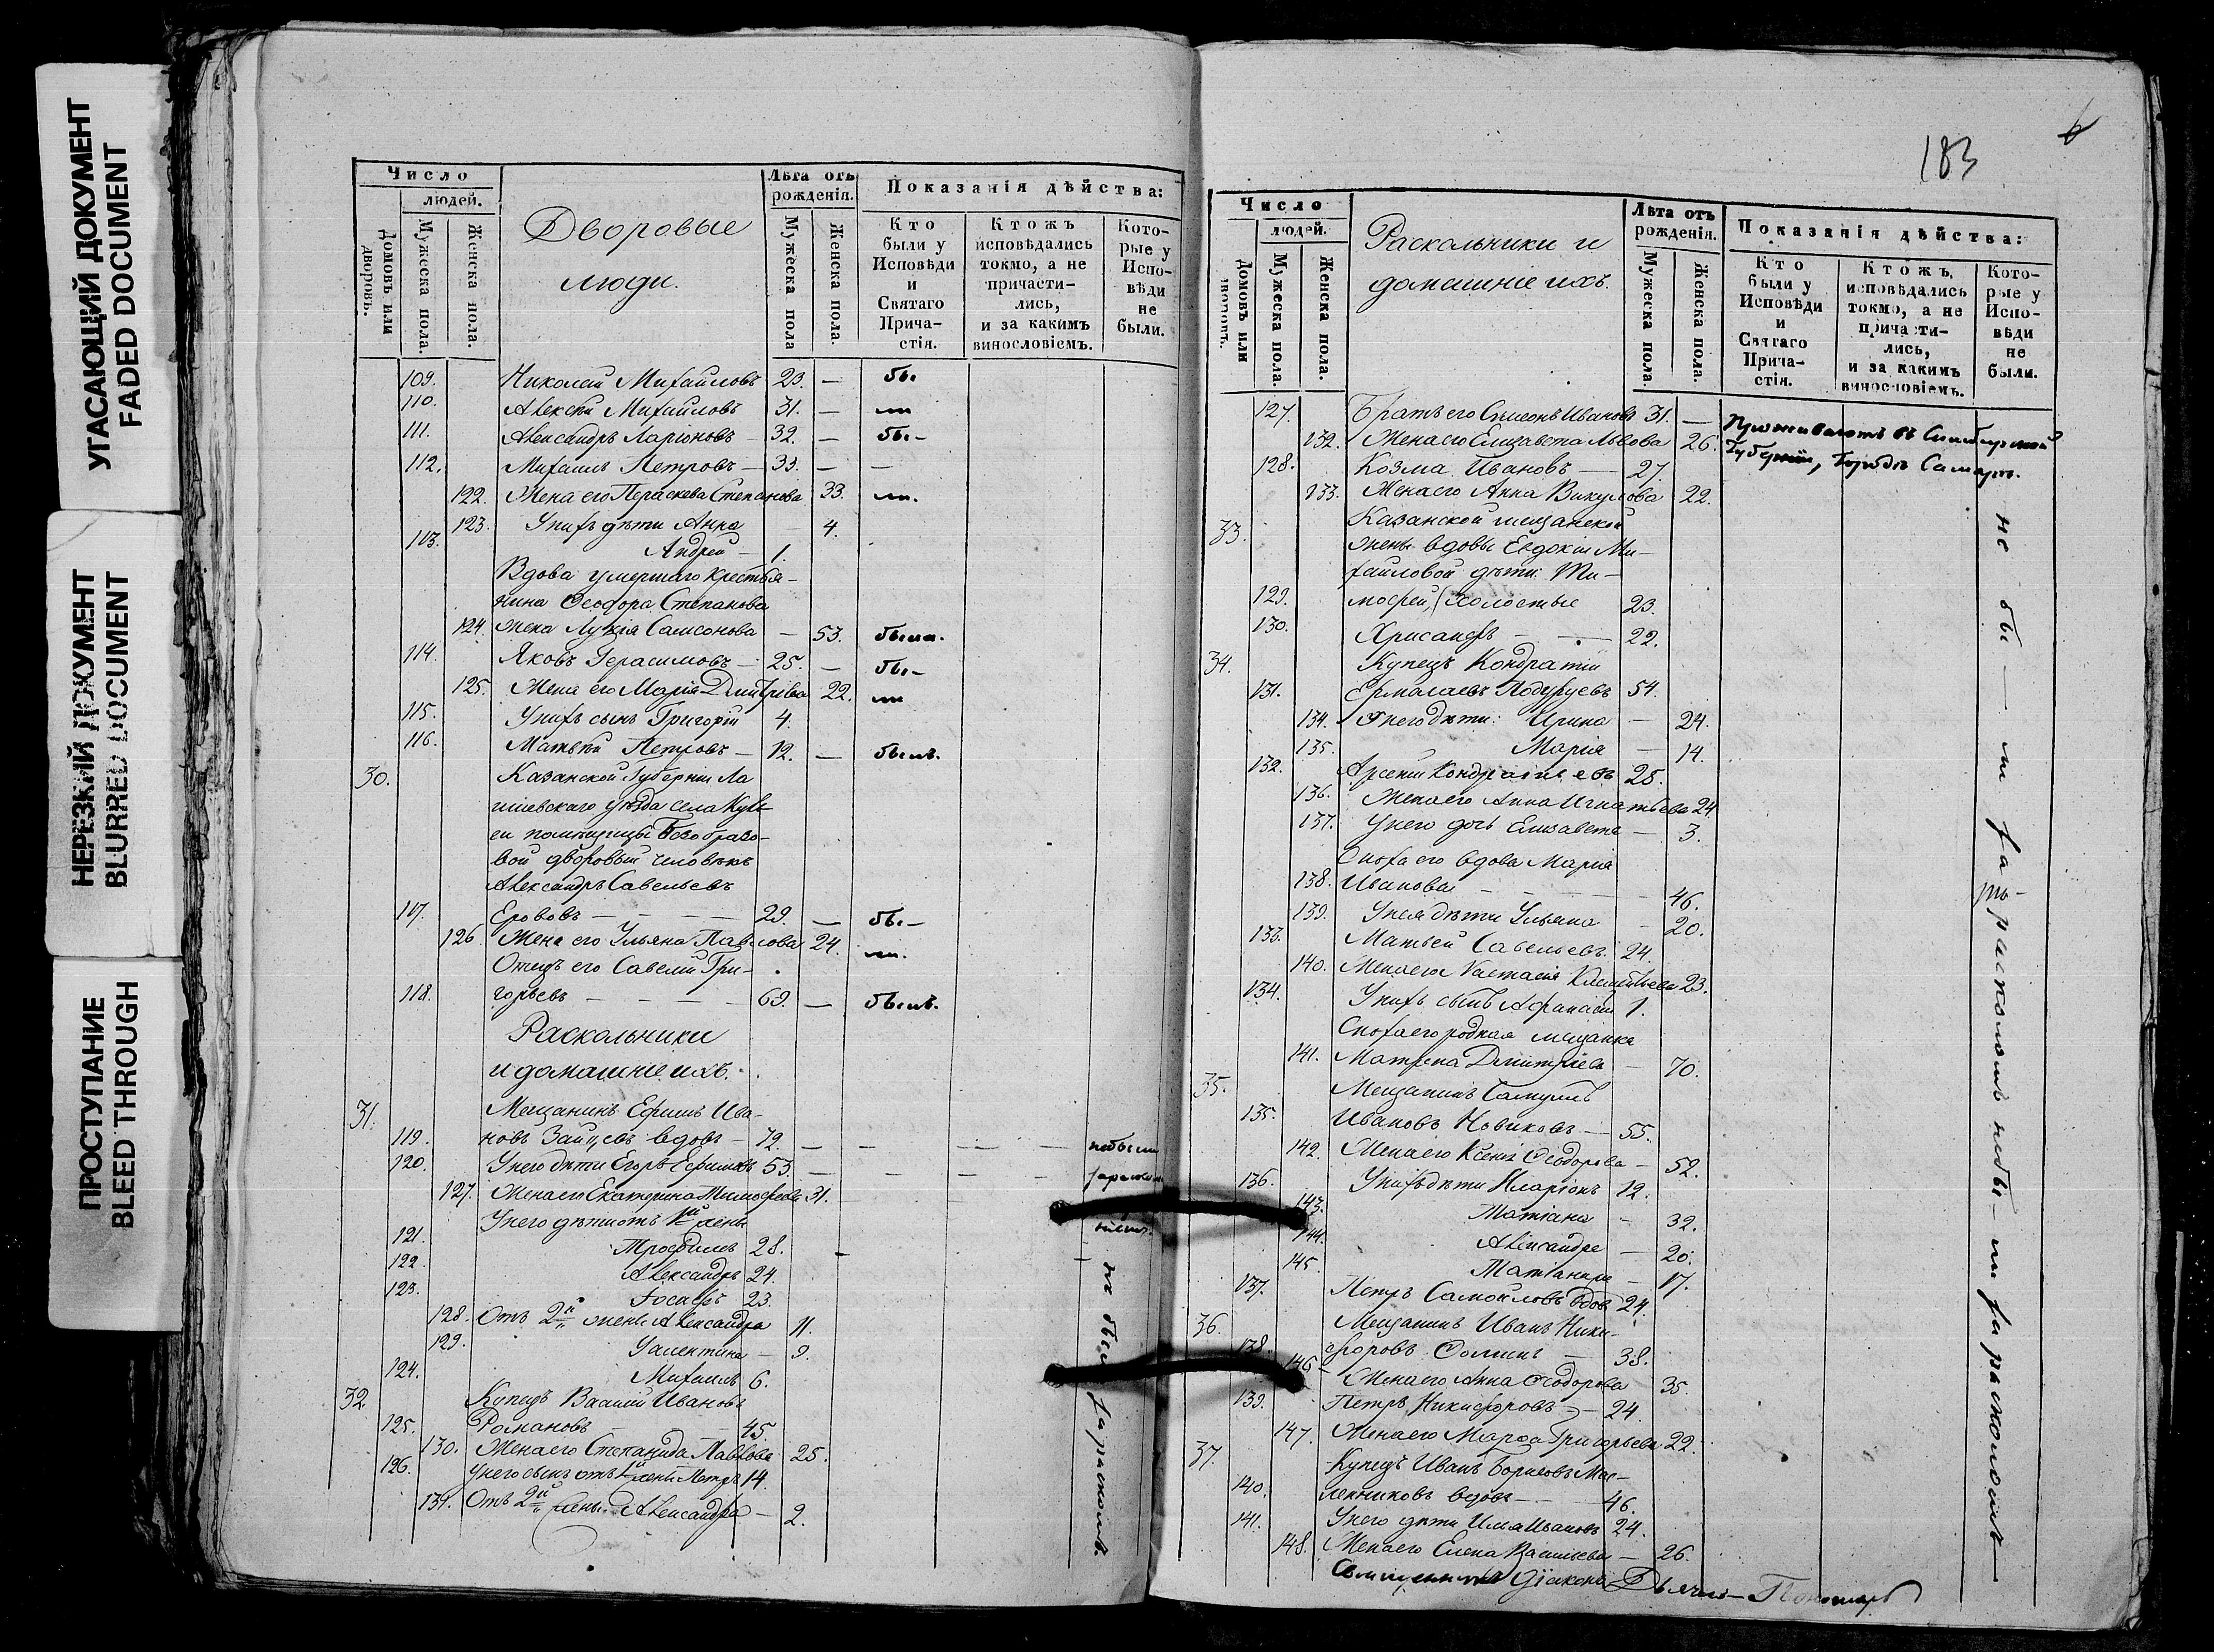 УГАСАЮЩИЙ ДОКУМЕНТ
FADED DOCUMENT
НЕРЕЗКИЙ ДОКУМЕНТ
BLURRED DOCUMENT
ПРОСТУПАНИЕ
BLEED THROUGH
Число
людей.
Домовъ или дворовъ.
Мужеска пола.
Женска пола.
Дворовые
люди.
Лѣта отъ рожденія.
Мужеска пола
Женска пола.
Показанія дѣйства:
Кто были у Исповѣди и Святаго Причастія.
Ктожъ исповѣдались токмо, а не причастились, и за какимъ винословіемъ.
Которые у Исповѣди не были.
109. Николай Михайловъ 23. — бы
110. Алексѣй Михайловъ 31. — ли
111. Александръ Ларіоновъ — 32. — бы —
112. Михаилъ Петровъ — 33. — —
122. Жена его Параскева Степанова 33. ли.
123. У нихъ дѣти Анна — 4.
113. Андрей — 1.
Вдова умершаго крестья-
нина Ѳеодора Степанова
124. жена Лукія Самсонова — 53. была.
114. Яковъ Герасимовъ — 25. — бы —
125. Жена его Марія Дмитріева 22. ли
115. У нихъ сынъ Григорій 4.
116. Матвѣй Петровъ — 12. — былъ.
30. Казанской Губерніи Ла
ишевскаго уѣзда села
ги помѣщицы Безобразо-
вой дворовый человѣкъ
Александръ Савельевъ
117. — — — — 29. — бы —
126. Жена его Ульяна Павлова 24. ли.
Отецъ его Савелій Гри-
118. горьевъ — — — — 69. — былъ.
Раскольники
и домашніе ихъ.
31. Мещанинъ Ефимъ Ива-
119. новъ Зайцевъ вдовъ — 79. — — — небыли
120. У него дѣти Егоръ Ефимовъ 53. — — —
127. Жена его Екатерина Тимофеева 31.
У него дѣти отъ 1й жены
121. Трофимъ 28.
122. Александръ 24.
123. Іосафъ 23.
128. Отъ 2й жены Александра 11.
129. Валентина — 9.
124. Михаилъ 6.
32. Купецъ Василій Ивановъ
125. Романовъ — 45.
130. Жена его Степанида Павлова 25.
126. У него сынъ отъ 1й жены Петръ 14.
131. Отъ 2й жены Александра — 2.
не были за расколомъ.
183
6
Число
людей.
Домовъ или дворовъ.
Мужеска пола.
Женска пола.
Раскольники и
домашніе ихъ.
Лѣта отъ рожденія.
Мужеска пола.
Женска пола.
Показанія дѣйства:
Кто были у Исповѣди и Святаго Причастія.
Ктожъ, исповѣдались токмо, а не причастились, и за какимъ винословіемъ.
Которые у Исповѣди не были.
127. Братъ его Симеонъ Ивановъ 31. — Проживаютъ въ Симбирской
132. Жена его Елизавета Львова 26. Губерніи, Городѣ Самарѣ.
128. Козма Ивановъ — 27.
133. Жена его Анна Викулова 22.
33. Казанской мещанской
жены вдовы Евдокіи Ми-
хайловой дѣти: Ти-
129. мофей, (холостые 23.
130. Хрисанфъ — — 22.
34. Купецъ Кондратій
131. Ермолаевъ Подуруевъ 54.
134. У него дѣти: Ирина — 24.
135. Марія — 14.
132. Арсеній Кондратьевъ 28.
136. Жена его Анна Игнатьева 24.
137. У него дочь Елизавета — 3.
Сноха его вдова Марія
138. Иванова — — — 46.
139. У нея дѣти Ульяна — 20.
133. Матвей Савельевъ. 24.
140. Жена его Настасія Климентьева 23.
134. У нихъ сынъ Афанасій 1.
Сноха его родная мещанка
141. Матрена Дмитріева — 70.
35. Мещанинъ Самуилъ
135. Ивановъ Новиковъ — 55.
142. Жена его Ксенія Ѳеодорова — 52.
136. У нихъ дѣти Иларіонъ 12.
143. Татіана — 32.
144. Александра — 20.
145. Матіанна — 17.
137. Петръ Самойловъ вдовъ 24.
36. Мещанинъ Иванъ Ники-
138. форовъ Ѳоминъ — 38.
146. Жена его Анна Ѳеодорова 35.
139. Петръ Никифоровъ — 24.
147. Жена его Марѳа Григорьева 22.
37. Купецъ Иванъ Борисовъ Мас-
140. ленниковъ вдовъ — 46.
141. У него дѣти Илья Ивановъ 24.
148. Жена его Елена Васильева — 26.
Священникъ Діаконъ Дьячек — Пономарь
не бы — ли за расколомъ небы — ли за расколомъ —